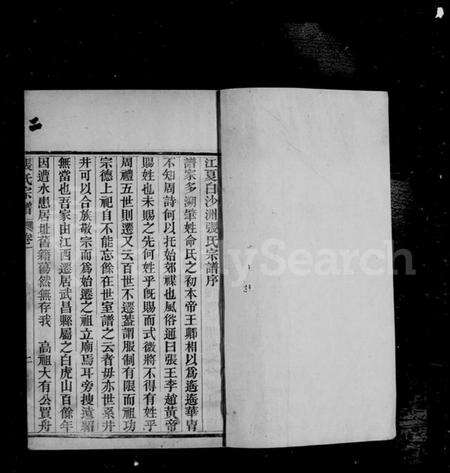 江夏白沙洲張氏宗譜序
譜家多溯肇姓命氏之初本帝王卿相以爲遙遙華胄
不知周詩何以托始郊禖也風俗通曰張王李趙黃帝
賜姓也未賜之先何姓乎旣賜而式微將不得有姓乎
周禮五世則遷又云百世不遷蓋謂服制有限而祖功
宗德上祀自不能忘餘在世室譜之云者毋亦世系井
井可以合族敬宗而為始遷之祖立廟焉耳旁搜遠紹
無當也吾家由江西遷居武昌縣屬之白虎山百餘年
因遭水患居址舊籍蕩然無存我 高祖大有公買舟
張氏宗譜 卷一
二
MySearch